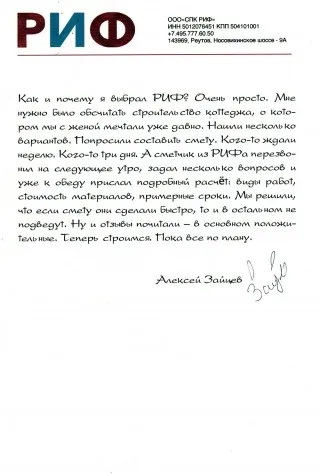 РИФ
ООО«СПК РИФ»
ИНН 5012076451 КПП 504101001
+7.495.777.60.50
143969, Реутов, Носовихинское шоссе - 9А
Как и почему я выбрал РИФ? Очень просто. Мне
нужно было обсчитать строительство коттеджа, о кото-
ром мы с женой мечтали уже давно. Нашли несколько
вариантов. Попросили составить смету. Кого-то ждали
неделю. Кого-то три дня. А сметчик из РИФа перезво-
нил на следующее утро, задал несколько вопросов и
уже к обеду прислал подробный расчёт: виды работ,
стоимость материалов, примерные сроки. Мы решили,
что если смету они сделали быстро, то и в остальном не
подведут. Ну и отзывы почитали – в основном положи-
тельные. Теперь строимся. Пока все по плану.
Алексей Зайцев